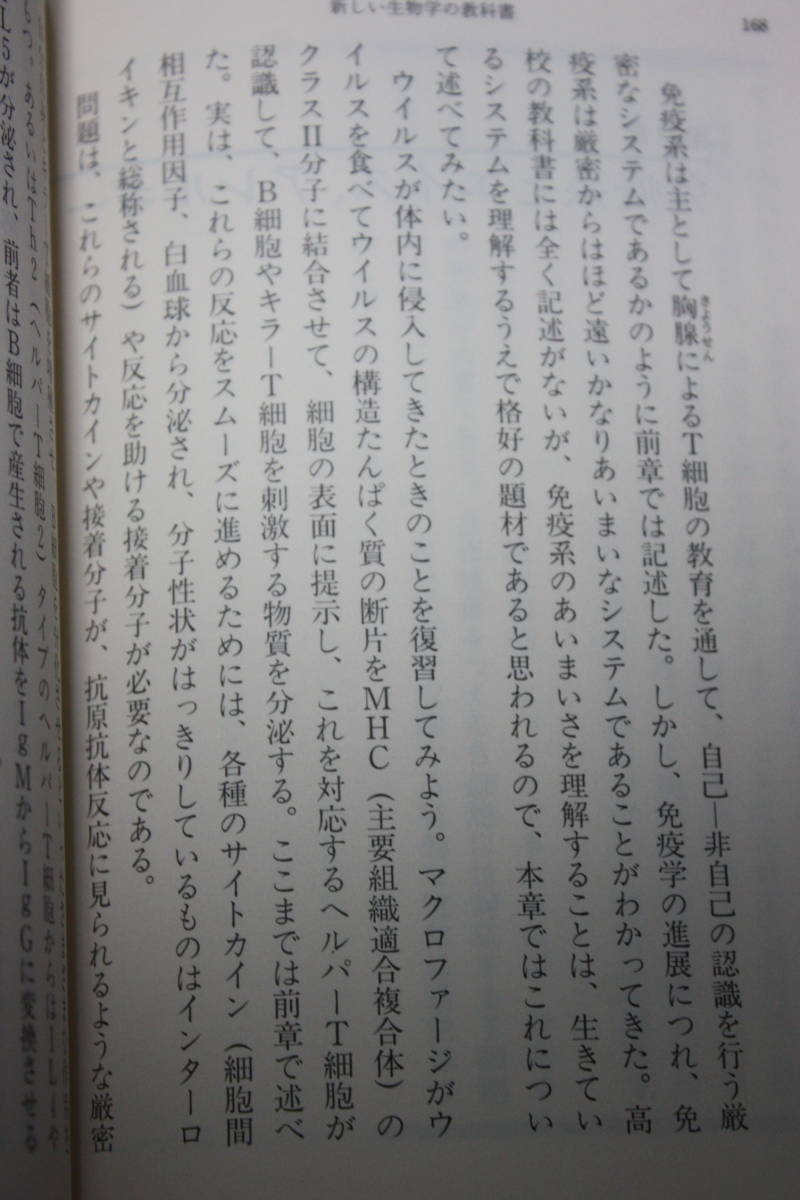 新しい生物学の教科書
168
免疫系は主として胸腺によるT細胞の教育を通して、自己―非自己の認識を行う厳
きょうせん
密なシステムであるかのように前章では記述した。しかし、免疫学の進展につれ、免
疫系は厳密からはほど遠いかなりあいまいなシステムであることがわかってきた。高
校の教科書には全く記述がないが、免疫系のあいまいさを理解することは、生きてい
るシステムを理解するうえで格好の題材であると思われるので、本章ではこれについ
て述べてみたい。
ウイルスが体内に侵入してきたときのことを復習してみよう。マクロファージがウ
イルスを食べてウイルスの構造たんぱく質の断片をMHC（主要組織適合複合体）の
クラスII分子に結合させて、細胞の表面に提示し、これを対応するヘルパーT細胞が
認識して、B細胞やキラーT細胞を刺激する物質を分泌する。ここまでは前章で述べ
た。実は、これらの反応をスムーズに進めるためには、各種のサイトカイン（細胞間
相互作用因子、白血球から分泌され、分子性状がはっきりしているものはインターロ
イキンと総称される）や反応を助ける接着分子が必要なのである。
問題は、これらのサイトカインや接着分子が、抗原抗体反応に見られるような厳密
もつ。あるいはTh2（ヘルパーT細胞2）タイプのヘルパーT細胞からはIL4や
L5が分泌され、前者はB細胞で産生される抗体をIgMからIgGに変換させる